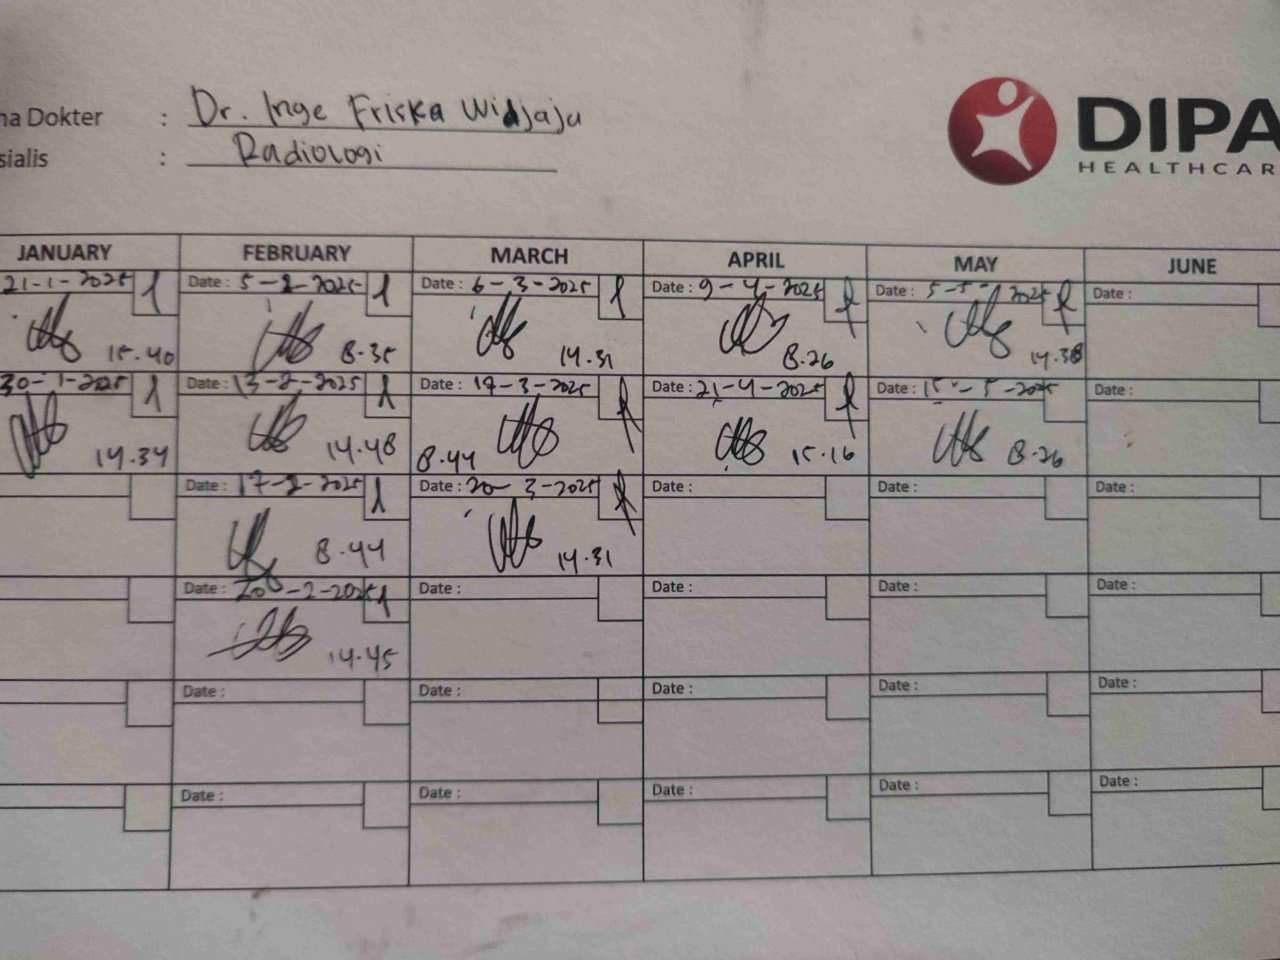 na Dokter : Dr. Inge Friska Widjaja
sialis : Radiologi
DIPA
HEALTHCAR
JANUARY FEBRUARY MARCH APRIL MAY JUNE
21-1-2025 Date : 5-2-2025 Date : 6-3-2025 Date : 9-4-2025 Date : 5-5-2025 Date :
15.40 8.35 14.31 8.26 14.38
30-1-2025 Date : 13-2-2025 Date : 19-3-2025 Date : 21-4-2025 Date : 15-5-2025 Date :
14.34 14.48 8.44 15.16 8.26
Date : 17-2-2025 Date : 20-3-2025 Date : Date : Date :
8.44 14.31
Date : 20-2-2025 Date : Date : Date : Date :
14.45
Date : Date : Date : Date : Date :
Date : Date : Date : Date : Date :